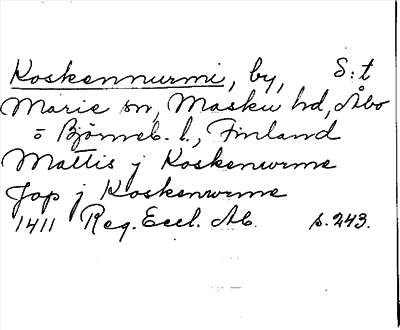 Koskennurmi, by, S:t
Marie sn, Masku hd, Åbo
o Björneb. l., Finland
Mattis j Koskenurme
Jop j Koskenurme
1411 Reg. Eccl. Ab. s. 243.